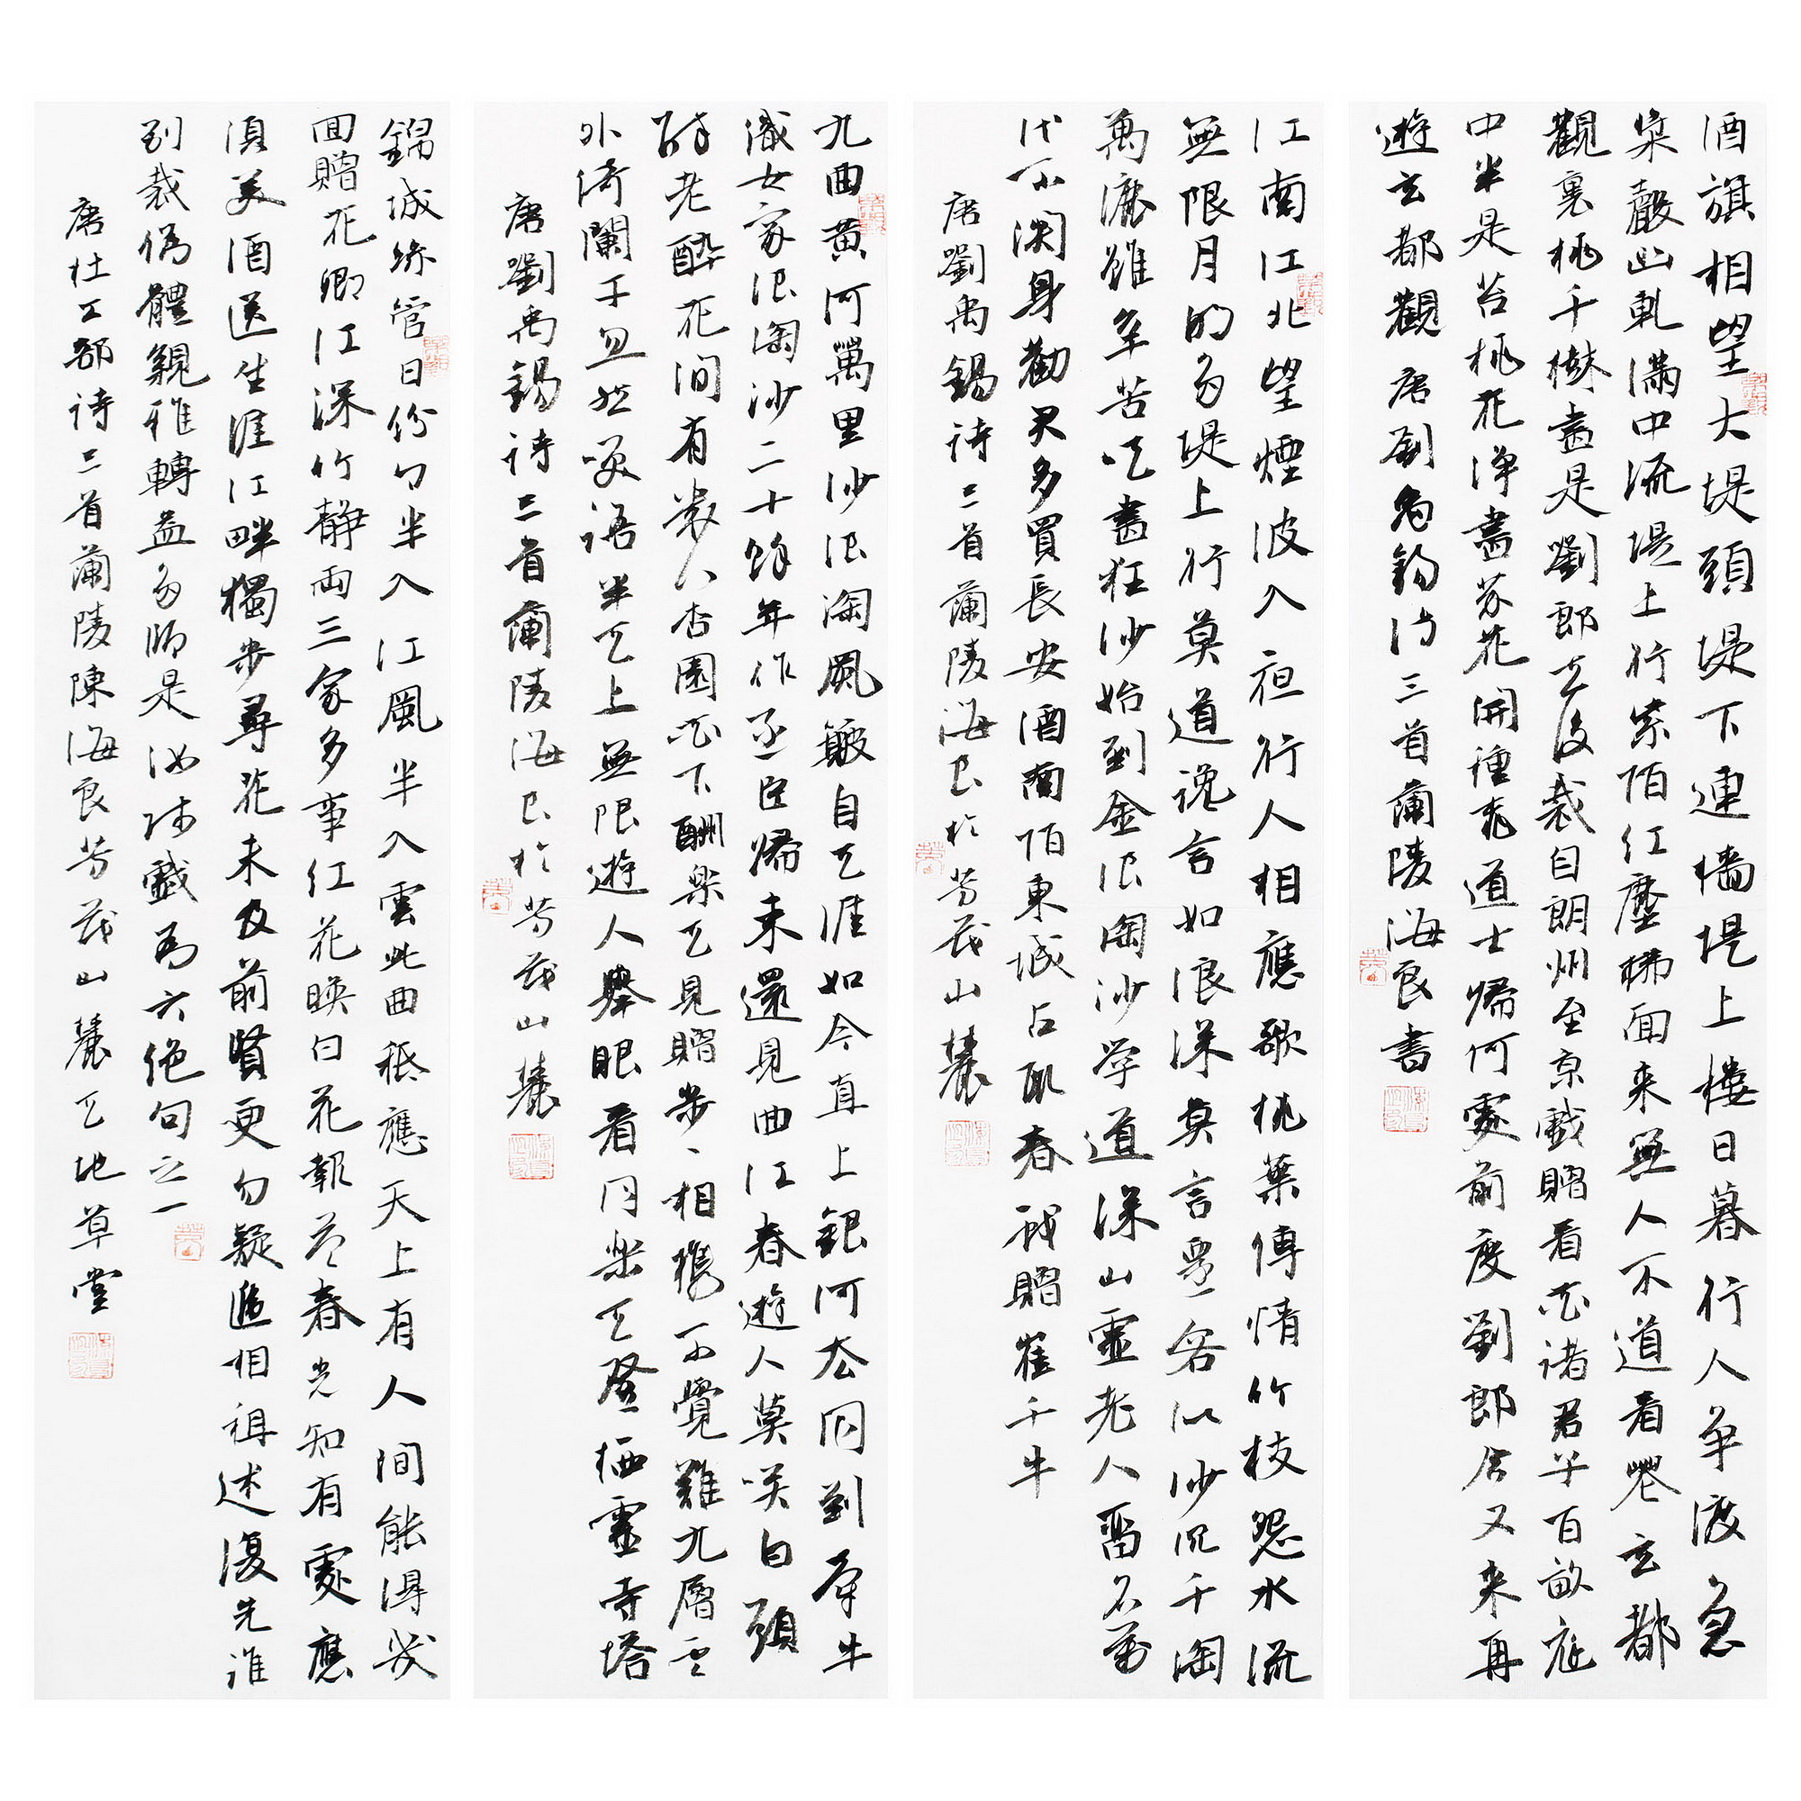 酒旗相望大堤頭堤下連檣堤上樓日暮行人争渡急
槳聲幽軋滿中流堤上行紫陌紅塵拂面来無人不道看花玄都
觀裏桃千樹盡是劉郎去後裁自朗州至京戲贈看花諸君子百畝庭
中半是苔桃花浄盡菜花開種桃道士歸何處前度劉郎今又来再
遊玄都觀唐劉禹錫詩三首蘭陵海良書
江南江北望煙波入夜行人相應歌桃葉傳情竹枝怨水流
無限月明多堤上行莫道讒言如浪深莫言遷客似沙沉千淘
萬漉雖辛苦吹盡狂沙始到金浪淘沙学道深山虚老人留名萬
代不関身勸君多買長安酒南陌東城占取春戲贈崔千牛
唐劉禹錫詩三首蘭陵海良於芳茂山麓
九曲黄河萬里沙浪淘風簸自天涯如今直上銀河去同到牽牛
織女家浪淘沙二十餘年作逐臣歸来還見曲江春遊人莫笑白頭
醉老醉花間有數人杏園花下酬樂天見贈步、相携不覺難九層雲
外倚闌干忽然笑語半天上無限遊人舉眼看同樂天登棲靈寺塔
唐劉禹錫詩三首蘭陵海良於芳茂山麓
錦城絲管日紛紛半入江風半入雲此曲秪應天上有人間能得幾
回贈花卿江深竹静兩三家多事紅花映白花報答春光知有處應
須美酒送生涯江畔獨步尋花未及前賢更勿疑遞相祖述復先誰
别裁偽體親雅轉益多師是汝師戲為六絶句之一
唐杜工部詩三首蘭陵陳海良芳茂山麓天地草堂